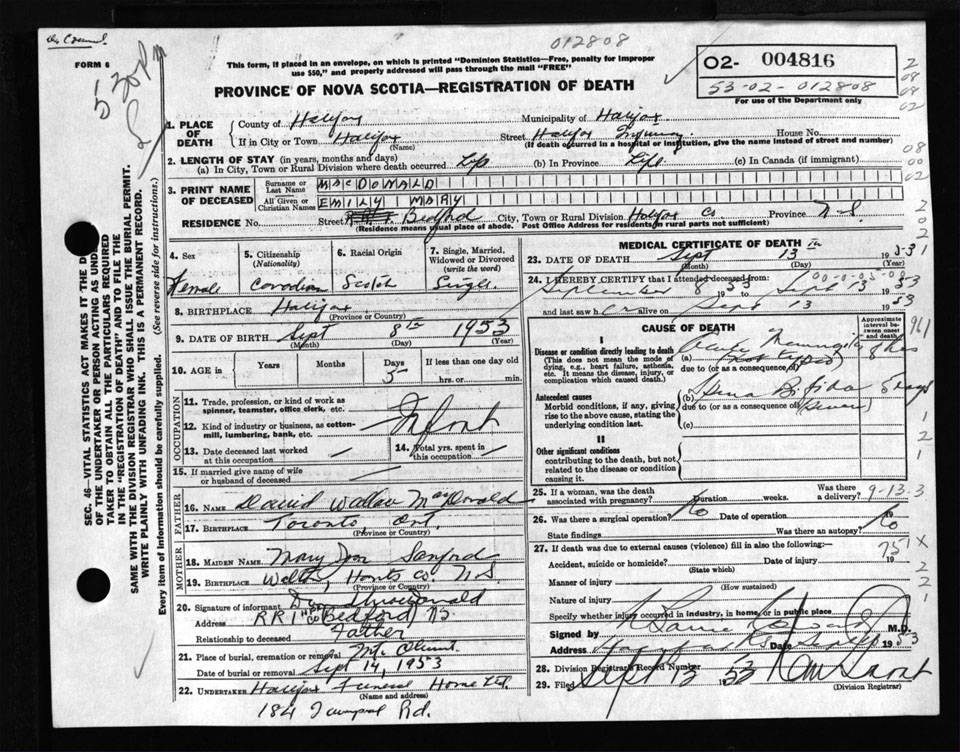 012808
FORM 6
This form, if placed in an envelope, on which is printed "Dominion Statistics—Free, penalty for improper
use $50," and properly addressed will pass through the mail "FREE"
O2- 004816
53-02-012808
For use of the Department only
PROVINCE OF NOVA SCOTIA—REGISTRATION OF DEATH
5:30 PM
1. PLACE OF DEATH
County of Halifax Municipality of Halifax
If in City or Town Halifax Street Halifax Infirmary House No.
(Name) (If death occurred in a hospital or institution, give the name instead of street and number)
2. LENGTH OF STAY (in years, months and days)
(a) In City, Town or Rural Division where death occurred Life (b) In Province Life (c) In Canada (if immigrant)
3. PRINT NAME OF DECEASED
Surname or Last Name MACDONALD
All Given or Christian Names EMILY MARY
RESIDENCE No. Street Bedford City, Town or Rural Division Halifax Co. Province N.S.
(Residence means usual place of abode. Post Office Address for residents in rural parts not sufficient)
4. Sex Female
5. Citizenship (Nationality) Canadian
6. Racial Origin Scotch
7. Single, Married, Widowed or Divorced (write the word) Single
8. BIRTHPLACE Halifax
(Province or Country)
9. DATE OF BIRTH Sept 8th 1953
(Month) (Day) (Year)
10. AGE in Years Months Days 5 If less than one day old hrs. or min.
OCCUPATION
11. Trade, profession, or kind of work as spinner, teamster, office clerk, etc.
12. Kind of industry or business, as cotton-mill, lumbering, bank, etc.
Infant
13. Date deceased last worked at this occupation
14. Total yrs. spent in this occupation
15. If married give name of wife or husband of deceased
FATHER
16. NAME David Wallace MacDonald
17. BIRTHPLACE Toronto Ont.
MOTHER
18. MAIDEN NAME Mary Jean Sanford
19. BIRTHPLACE Walton, Hants Co. N.S.
(Province or Country)
20. Signature of informant D W MacDonald
Address RR 1 Bedford NS
Relationship to deceased Father
21. Place of burial, cremation or removal Mt. Olivet
Sept 14, 1953
22. UNDERTAKER Halifax Funeral Home Ltd.
(Name and address)
184 Rd.
MEDICAL CERTIFICATE OF DEATH
23. DATE OF DEATH Sept 13th 1953
(Month) (Day) (Year)
24. I HEREBY CERTIFY that I attended deceased from:
September 8 1953 to Sept 13 1953
and last saw her alive on Sept 13 1953
CAUSE OF DEATH
Approximate interval between onset and death
I
Disease or condition directly leading to death
(This does not mean the mode of dying, e.g., heart failure, asthenia, etc. It means the disease, injury, or complication which caused death.)
(a) Meningitis
due to (or as a consequence of)
Antecedent causes
Morbid conditions, if any, giving rise to the above cause, stating the underlying condition last.
(b) Spina Bifida 5 days
due to (or as a consequence of)
(c)
II
Other significant conditions
contributing to the death, but not related to the disease or condition causing it.
25. If a woman, was the death associated with pregnancy? Duration weeks. Was there a delivery? 9-13-3
26. Was there a surgical operation? No Date of operation 19
State findings Was there an autopsy? No
27. If death was due to external causes (violence) fill in also the following:—
Accident, suicide or homicide? Date of injury 19
(State which)
751 X
Manner of injury
(How sustained)
Nature of injury
Specify whether injury occurred in industry, in home, or in public place
Signed by M.D.
Address Date 1953
28. Division Registrar's Record Number
29. Filed Sept 13 1953
(Division Registrar)
SEC. 46—VITAL STATISTICS ACT MAKES IT THE DUTY
OF THE UNDERTAKER OR PERSON ACTING AS UNDER-
TAKER TO OBTAIN ALL THE PARTICULARS REQUIRED
IN THE "REGISTRATION OF DEATH" AND TO FILE THE
SAME WITH THE DIVISION REGISTRAR WHO SHALL ISSUE THE BURIAL PERMIT.
WRITE PLAINLY WITH UNFADING INK. THIS IS A PERMANENT RECORD.
Every item of information should be carefully supplied. (See reverse side for instructions.)